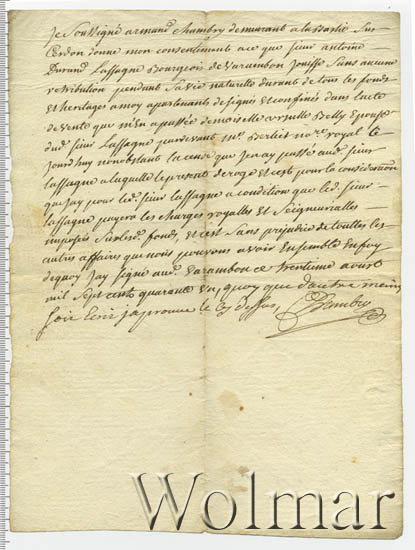 Je Soussigné armand Chambry demeurant a la Bastie Sur
Cerdon donne mon consentement a ce que sieur antoine
Durand Lassagne Bourgeois de Varambon jouisse Sans aucune
retribution pendant Sa vie naturelle durant de tous les fonds
et heritages a moy apartenants designés et confinés dans lacte
de vente que m'en a passée demoiselle Belly Epouse
dud. sieur Lassagne pardevant me. Berliet nore. royal ce
jourdhuy nonobstant la cense que jen ay passée aud. sieur
Lassagne a laquelle le present deroge et cest pour la consideration
que jay pour led. sieur lassagne a condition que led. sieur
lassagne payera les charges royalles et Seigneurialles
imposés Sur lesd. fonds, et cest Sans prejudice de touttes les
autres affaires que nous pouvons avoir Ensemble En foy
dequoy Jay Signé aud. Varambon ce trentieme aoust
mil Sept cent quarante un, quoy que d'autre main
soit Ecrit japrouve le cy dessus, Chambry
Wolmar